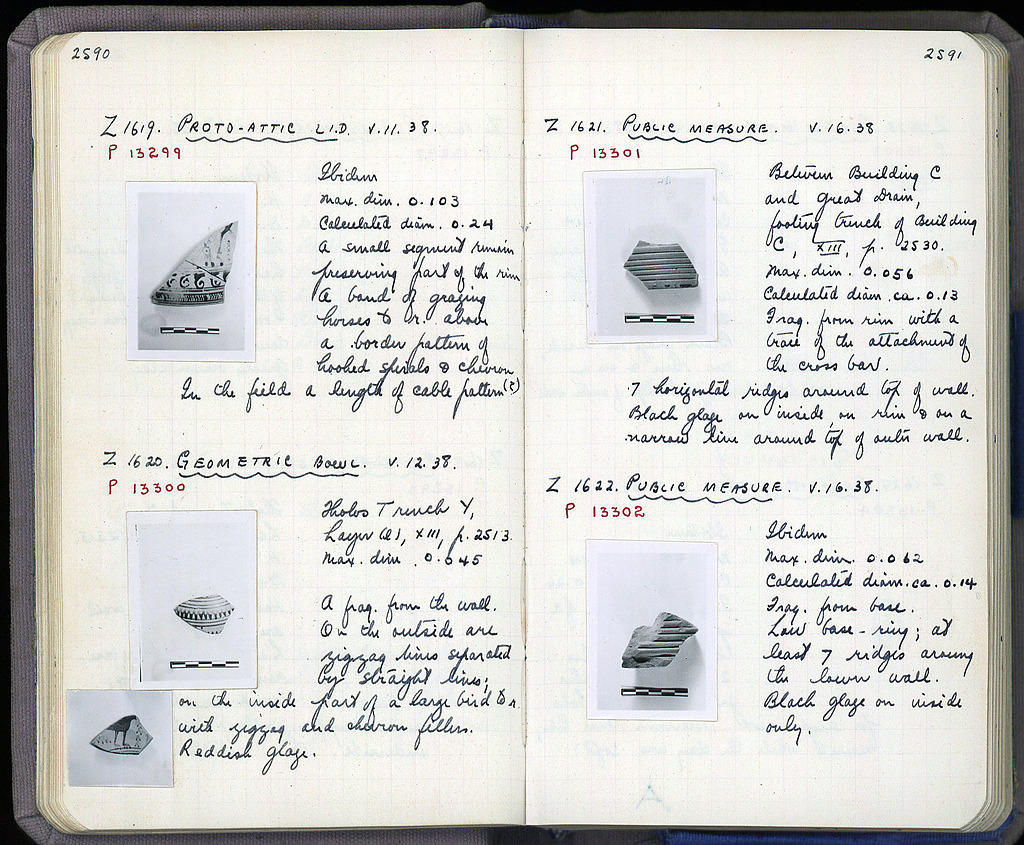 2590
Z 1619. PROTO-ATTIC LID. V.11.38.
P 13299
Ibidem
Max. dim. 0.103
Calculated diam. 0.24
A small segment remain
preserving part of the rim
A band of grazing
horses to r. above
a border pattern of
hooked spirals & chevron
In the field a length of cable pattern(?)
Z 1620. GEOMETRIC BOWL. V.12.38.
P 13300
Tholos Trench Y,
Layer XIII, p. 2513.
Max. dim. 0.045
A frag. from the wall.
On the outside are
zigzag lines separated
by straight lines;
on the inside part of a large bird to r.
with zigzag and chevron fillers.
Reddish glaze.
2591
Z 1621. PUBLIC MEASURE. V.16.38
P 13301
Between Building C
and Great Drain,
footing trench of Building
C, XIII, p. 2530.
Max. dim. 0.056
Calculated diam. ca. 0.13
Frag. from rim with a
trace of the attachment of
the cross bar.
7 horizontal ridges around top of wall.
Black glaze on inside, on rim & on a
narrow line around top of outer wall.
Z 1622. PUBLIC MEASURE. V.16.38.
P 13302
Ibidem
Max. dim. 0.062
Calculated diam. ca. 0.14
Frag. from base.
Low base-ring; at
least 7 ridges around
the lower wall.
Black glaze on inside
only.